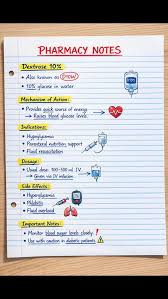 PHARMACY NOTES
Dextrose 10%
• Also known as D10W
• 10% glucose in water
Mechanism of Action:
• Provides quick source of energy
→ Raises blood glucose levels
Indications:
• Hypoglycemia
• Parenteral nutrition support
• Fluid resuscitation
Dosage:
• Usual dose: 100-500 mL IV
→ Given via IV infusion
Side Effects:
• Hyperglycemia
• Phlebitis
• Fluid overload
Important Notes:
• Monitor blood sugar levels closely!
• Use with caution in diabetic patients